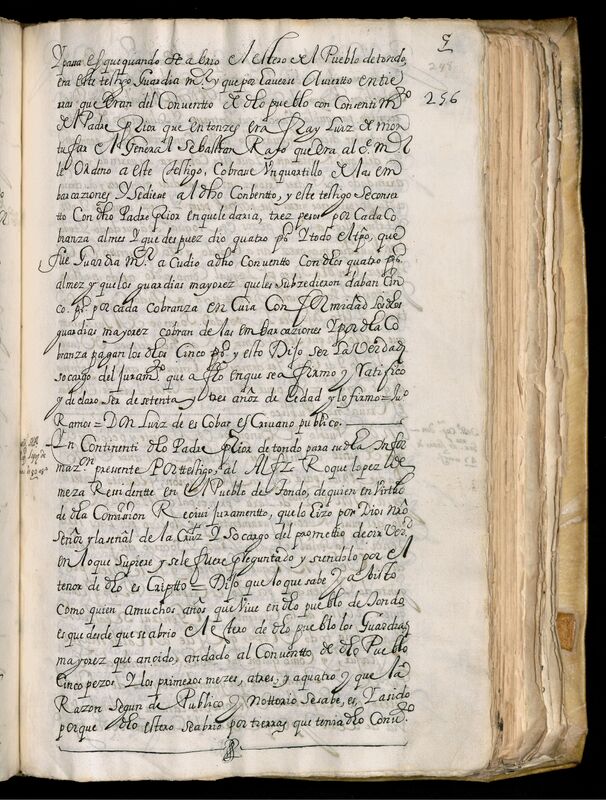 9
248
256
Y para es que quando se abrio el estero del Pueblo de tondo,
era este testigo Guardia mr. y que por haverse Avierto en tie
rras que eran del Conventto de dho pueblo con Consentim.to
del Padre Prior que entonzes era fray Luiz de mon
tufar el General Sebastian Rafo que era al
le Ordeno a este testigo, Cobrase Un quartillo de las em
barcaziones Y sediese al dho Conbentto, y este testigo se conser
tto Con dho Padre Prior en que le daria, trez pesos por Cada Co
branza al mes Y que despuez dio quatro ps. Y todo el tpo, que
fue Guardia mr. acudio adho Conventto Con dhos quatro ps.
al mez y que los guardias mayorez que les Subzedieron daban Cin
co. ps. por cada Cobranza en Cuia Conformidad los dhos
guardias mayorez cobran de las embarcaziones Y por dha Co
branza pagan los dhos Cinco ps. y esto Dijo ser la Verdad
so cargo del Juram.to que a fho en que se afirmo y Ratifico
y declaro Ser de setenta y trez años de hedad y lo firmo = Ju.o
Ramos = Don Luiz de escobar escriuano publico.
En Continenti dho Padre Prior de tondo para su dha Infor
maz.n presente Por testigo, al Mre. Roque lopez de
meza Residentte en el Pueblo de Tondo, de quien en Virtud
de dha Comission Recivi Juramentto, que lo hizo por Dios nro
Señor y la señal de la Cruz Y so cargo del prometio decir Ver.d
en lo que supiere y se le fuere preguntado y siendolo por el
tenor de dho escriptto = Dijo que lo que sabe Y a bisto
Como quien a muchos años que Viue en dho pueblo de tondo
es que desde que se abrio el estero de dho pueblo los Guardias
mayorez que an cido, an dado al Conventto de dho Pueblo
Cinco pezos Y los primeros mezes, a tres, y a quatro y que la
Razon segun de Publico Y nottorio se sabe, es, Y a sido
porque dho estero se abrio por tierras que tenia dho Conv.to